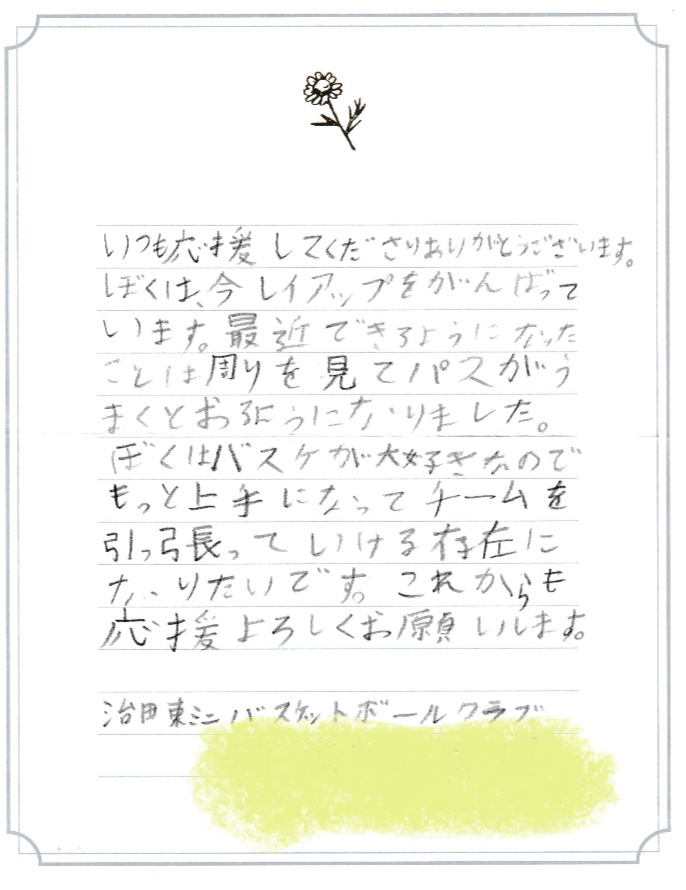 いつも応援してくださりありがとうございます。
ぼくは、今レイアップをがんばって
います。最近できるようになった
ことは周りを見てパスがう
まくとおるようになりました。
ぼくはバスケが大好きなので
もっと上手になってチームを
引っ張っていける存在に
なりたいです。これからも
応援よろしくお願いします。
治田東ミニバスケットボールクラブ